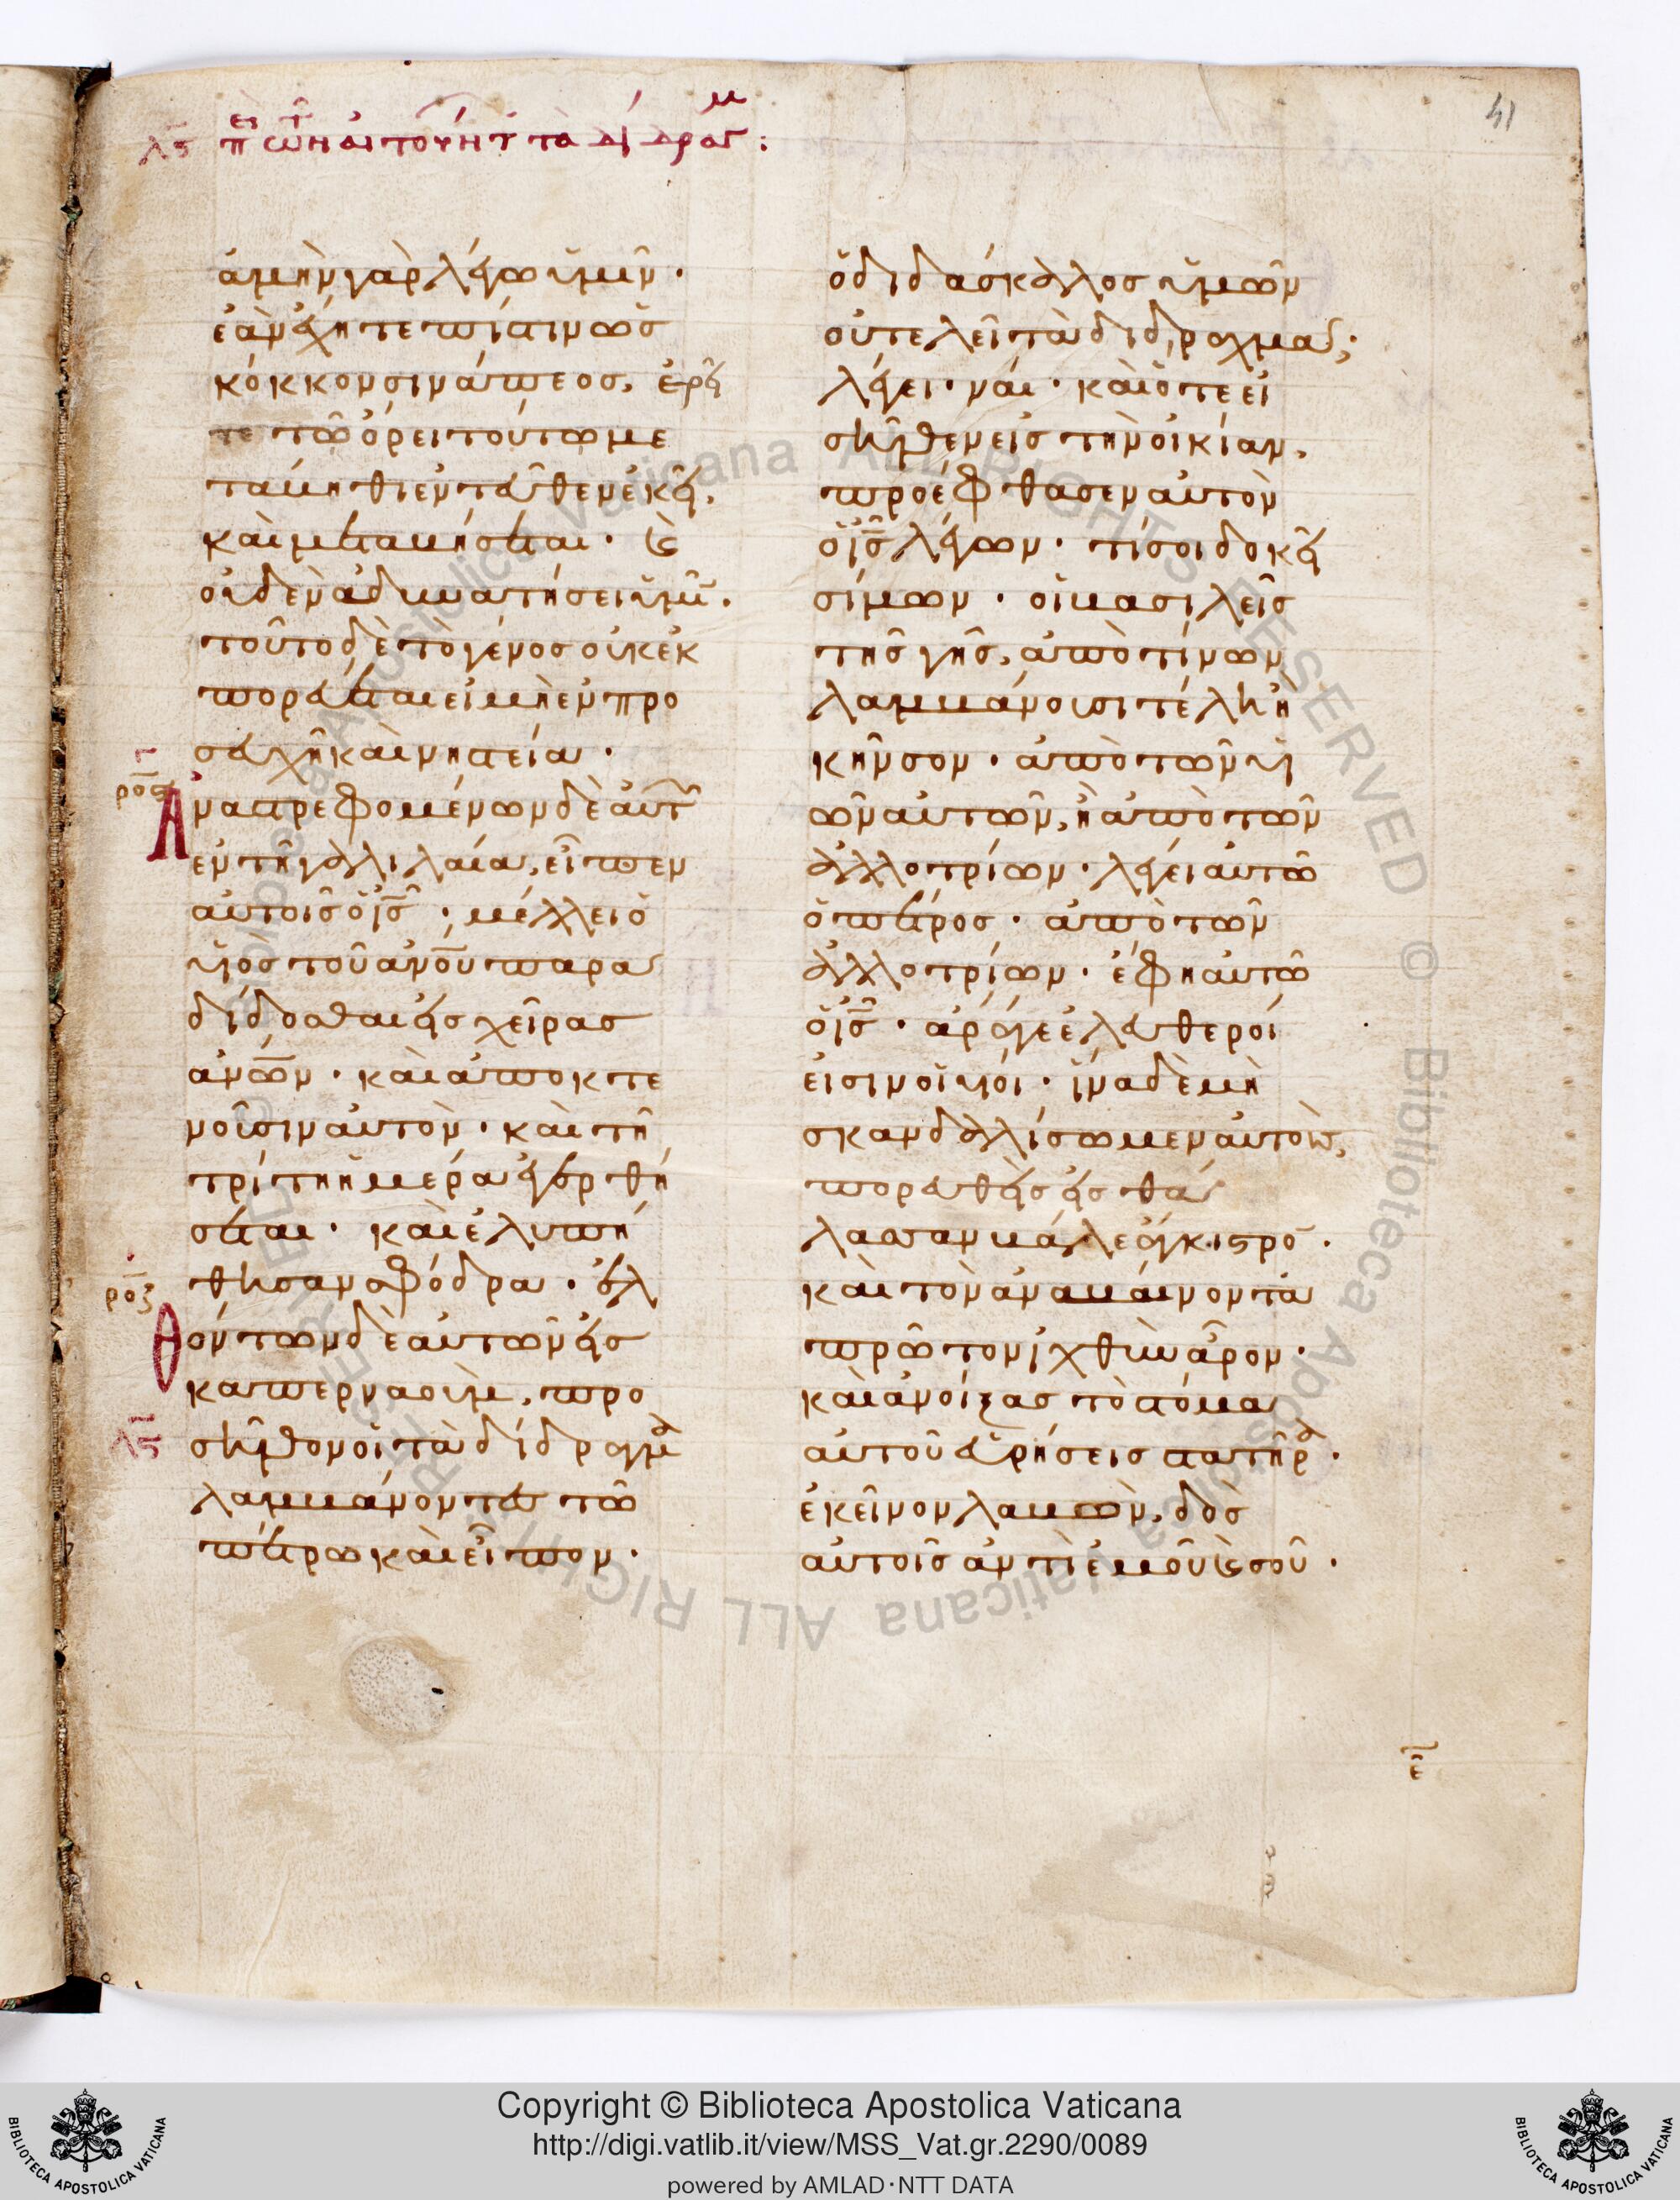 41
λϛ
ἀμὴν γὰρ λέγω ὑμῖν·
ἐὰν ἔχητε πίστιν ὡς
κόκκον σινάπεος, ἐρεῖ
τε τῶ ὄρει τούτω με
τάβηθι ἐντεῦθεν ἐκεῖ,
καὶ μεταβήσεται· καὶ
οὐδὲν ἀδυνατήσει ὑμῖν.
τοῦτο δὲ τὸ γένος οὐκ ἐκ
πορεύεται εἰ μὴ ἐν προ
σευχῆ καὶ νηστεία·
ροϛ
Ἀναστρεφομένων δὲ αὐτ
ἐν τῆ γαλιλαία, εἶπεν
αὐτοῖς ὁ ις̅· μέλλει ὁ
υἱὸς τοῦ ανου παρα
δίδοσθαι εἰς χεῖρας
ανων· καὶ ἀποκτε
νοῦσιν αὐτὸν· καὶ τῆ
τρίτη ἡμέρα ἐγερθή
σεται· καὶ ἐλυπή
θησαν σφόδρα· ἐλ
ροζ
Θόντων δὲ αὐτῶν εἰς
καπερναούμ, προ
λϛ
σῆλθον οἱ τὰ δίδραγμα
λαμβάνοντες τῶ
πέτρω καὶ εἶπον·
ὁ διδάσκαλος ὑμῶν
οὐ τελεῖ τὰ δίδραχμα;
λέγει· ναί· καὶ ὅτε εἰ
σῆλθεν εἰς τὴν οἰκίαν,
προέφθασεν αὐτὸν
ὁ ις̅ λέγων· τί σοι δοκεῖ
σίμων· οἱ βασιλεῖς
τῆς γῆς, ἀπὸ τίνων
λαμβάνουσι τέλη ἢ
κῆνσον· ἀπὸ τῶν υἱ
ῶν αὐτῶν, ἢ ἀπὸ τῶν
ἀλλοτρίων· λέγει αὐτῶ
ὁ πέτρος· ἀπὸ τῶν
ἀλλοτρίων· ἔφη αὐτῶ
ὁ ις̅· ἄραγε ἐλεύθεροί
εἰσιν οἱ υἱοί· ἵνα δὲ μὴ
σκανδαλίσωμεν αὐτούς,
πορευθεὶς εἰς θά
λασσαν βάλε ἄγκιστρον·
καὶ τὸν ἀναβαίνοντα
πρῶτον ἰχθὺν ἆρον·
καὶ ἀνοίξας τὸ στόμα
αὐτοῦ εὑρήσεις στατῆρα·
ἐκεῖνον λαβὼν, δὸς
αὐτοῖς ἀντὶ ἐμοῦ καὶ σοῦ·
Copyright © Biblioteca Apostolica Vaticana
http://digi.vatlib.it/view/MSS_Vat.gr.2290/0089
powered by AMLAD·NTT DATA
BIBLIOTECA APOSTOLICA VATICANA
BIBLIOTECA APOSTOLICA VATICANA
© Biblioteca Apostolica Vaticana ALL RIGHTS RESERVED © Biblioteca Apostolica Vaticana ALL RIGHTS RESERVED